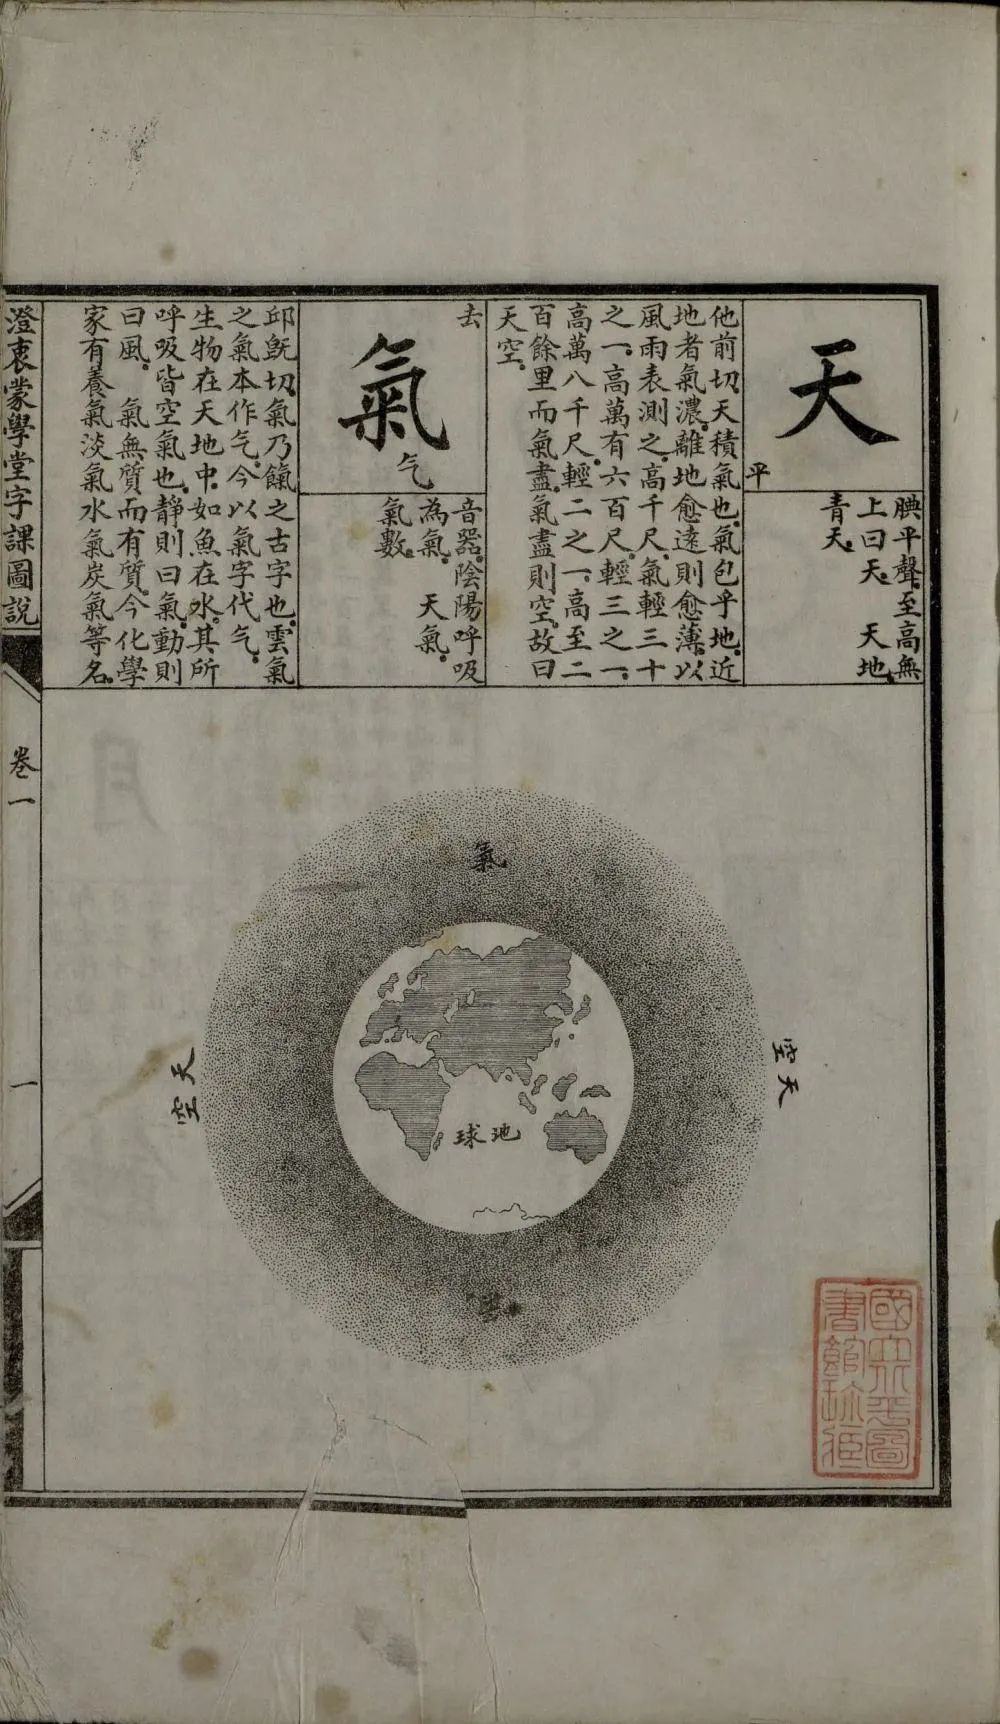 天
平
腆平聲。至高無
上曰天。 天地。
青天。
他前切。天積氣也。氣包乎地。近
地者氣濃。離地愈遠則愈薄。以
風雨表測之。高千尺。氣輕三十
之一。高萬有六百尺。輕三之一。
高萬八千尺。輕二之一。高至二
百餘里而氣盡。氣盡則空。故曰
天空。
去
氣
气
音器。陰陽呼吸
為氣。 天氣。
氣數。
邱旣切。氣乃餼之古字也。雲氣
之氣本作气。今以氣字代气。
生物在天地中。如魚在水。其所
呼吸皆空氣也。靜則曰氣。動則
曰風。 氣無質而有質。今化學
家有養氣淡氣水氣炭氣等名。
澄衷蒙學堂字課圖說
卷一
一
氣
天空
天空
地球
國立北平圖
書館珍藏